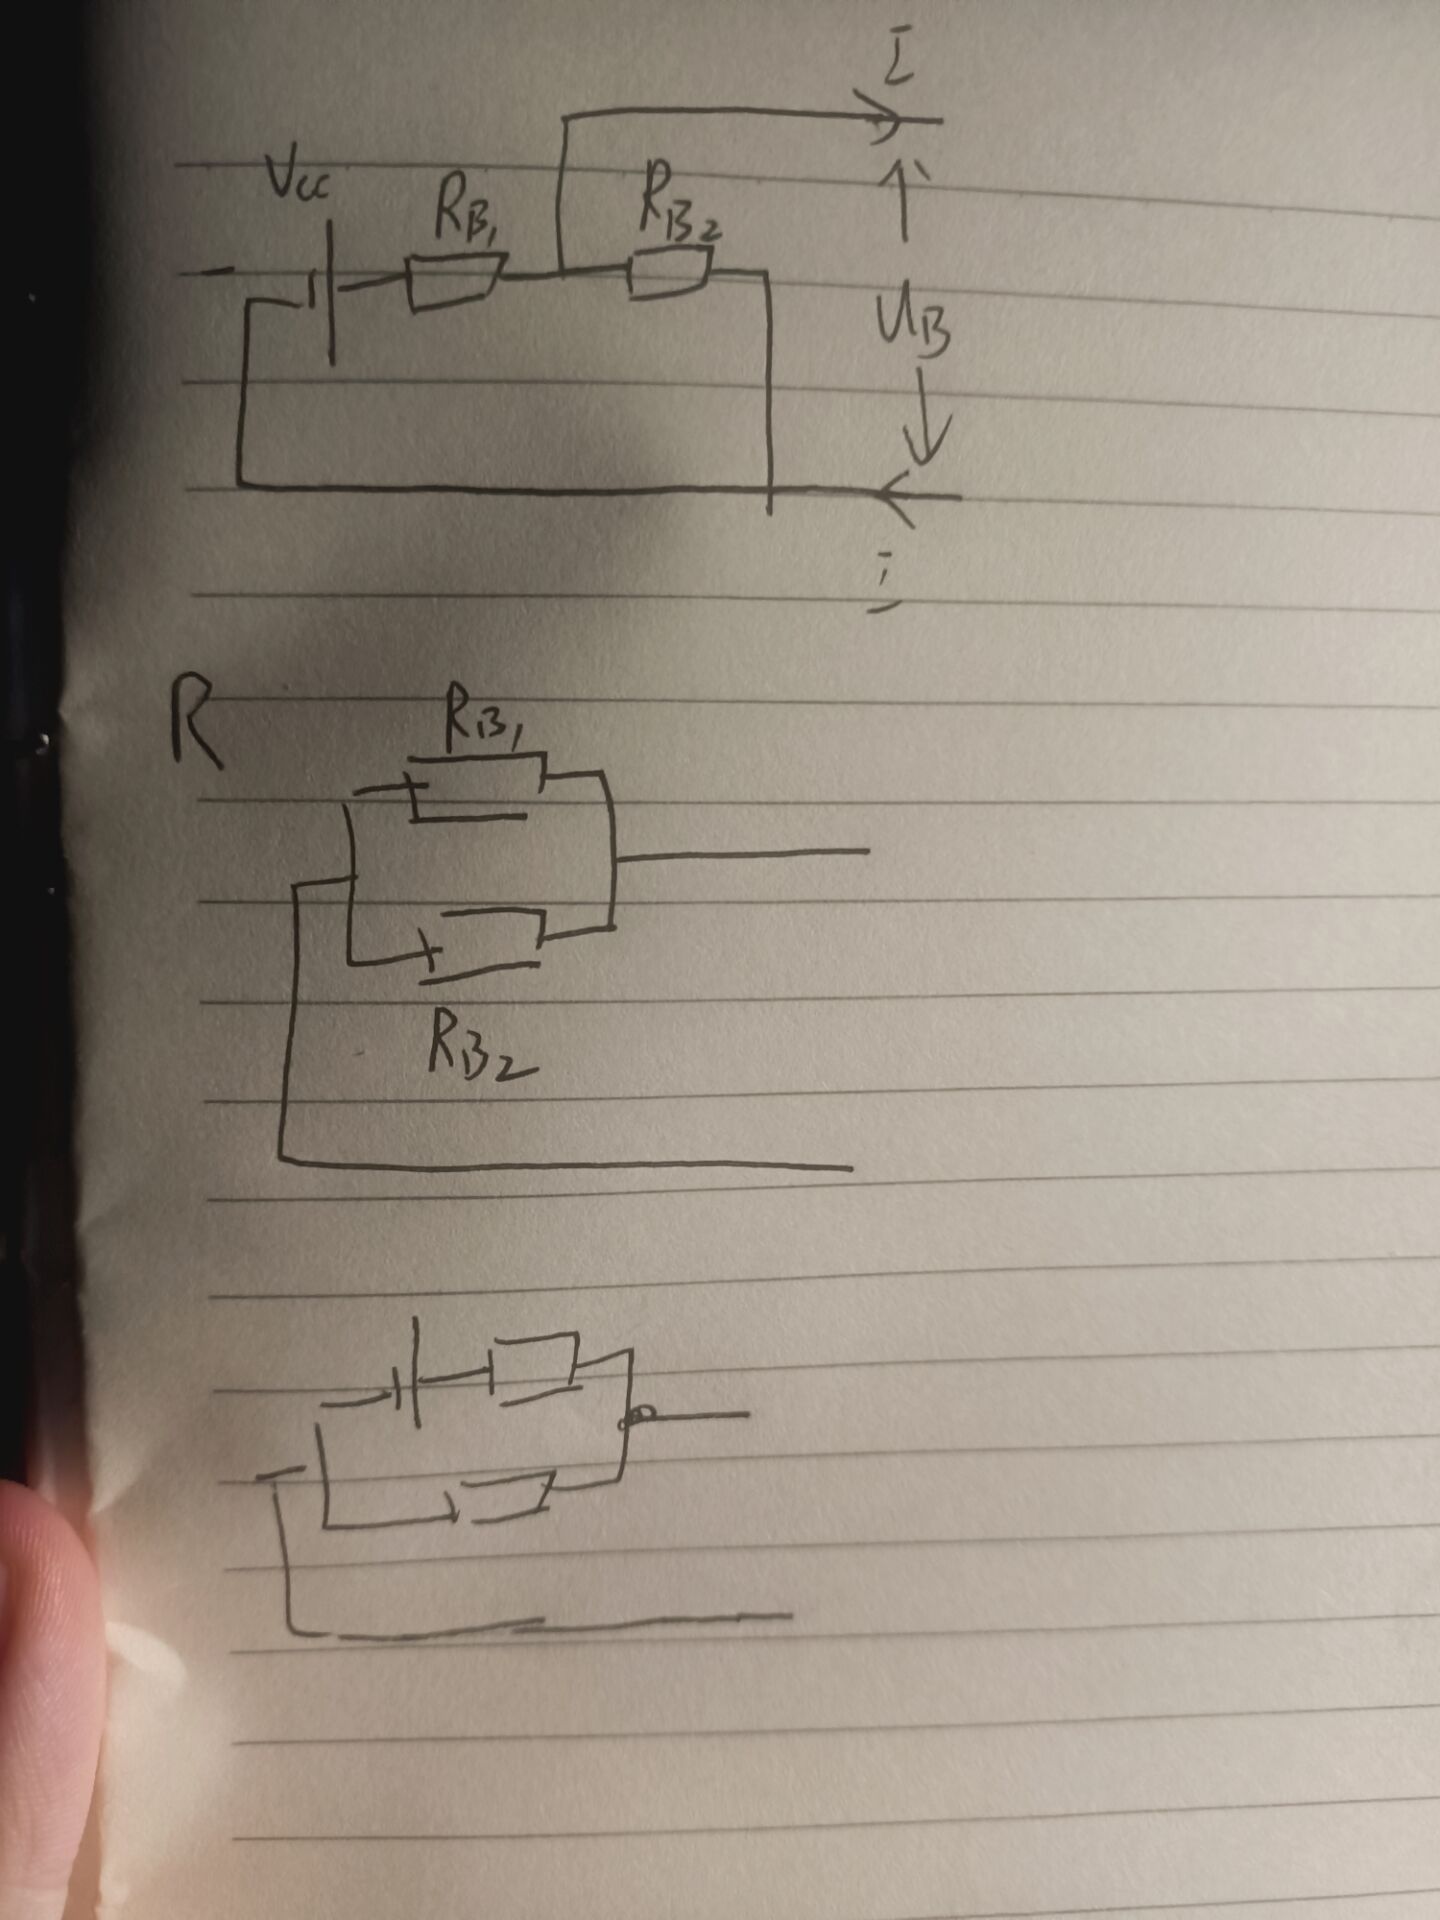 I
Vcc
RB1
RB2
UB
I
R
RB1
RB2